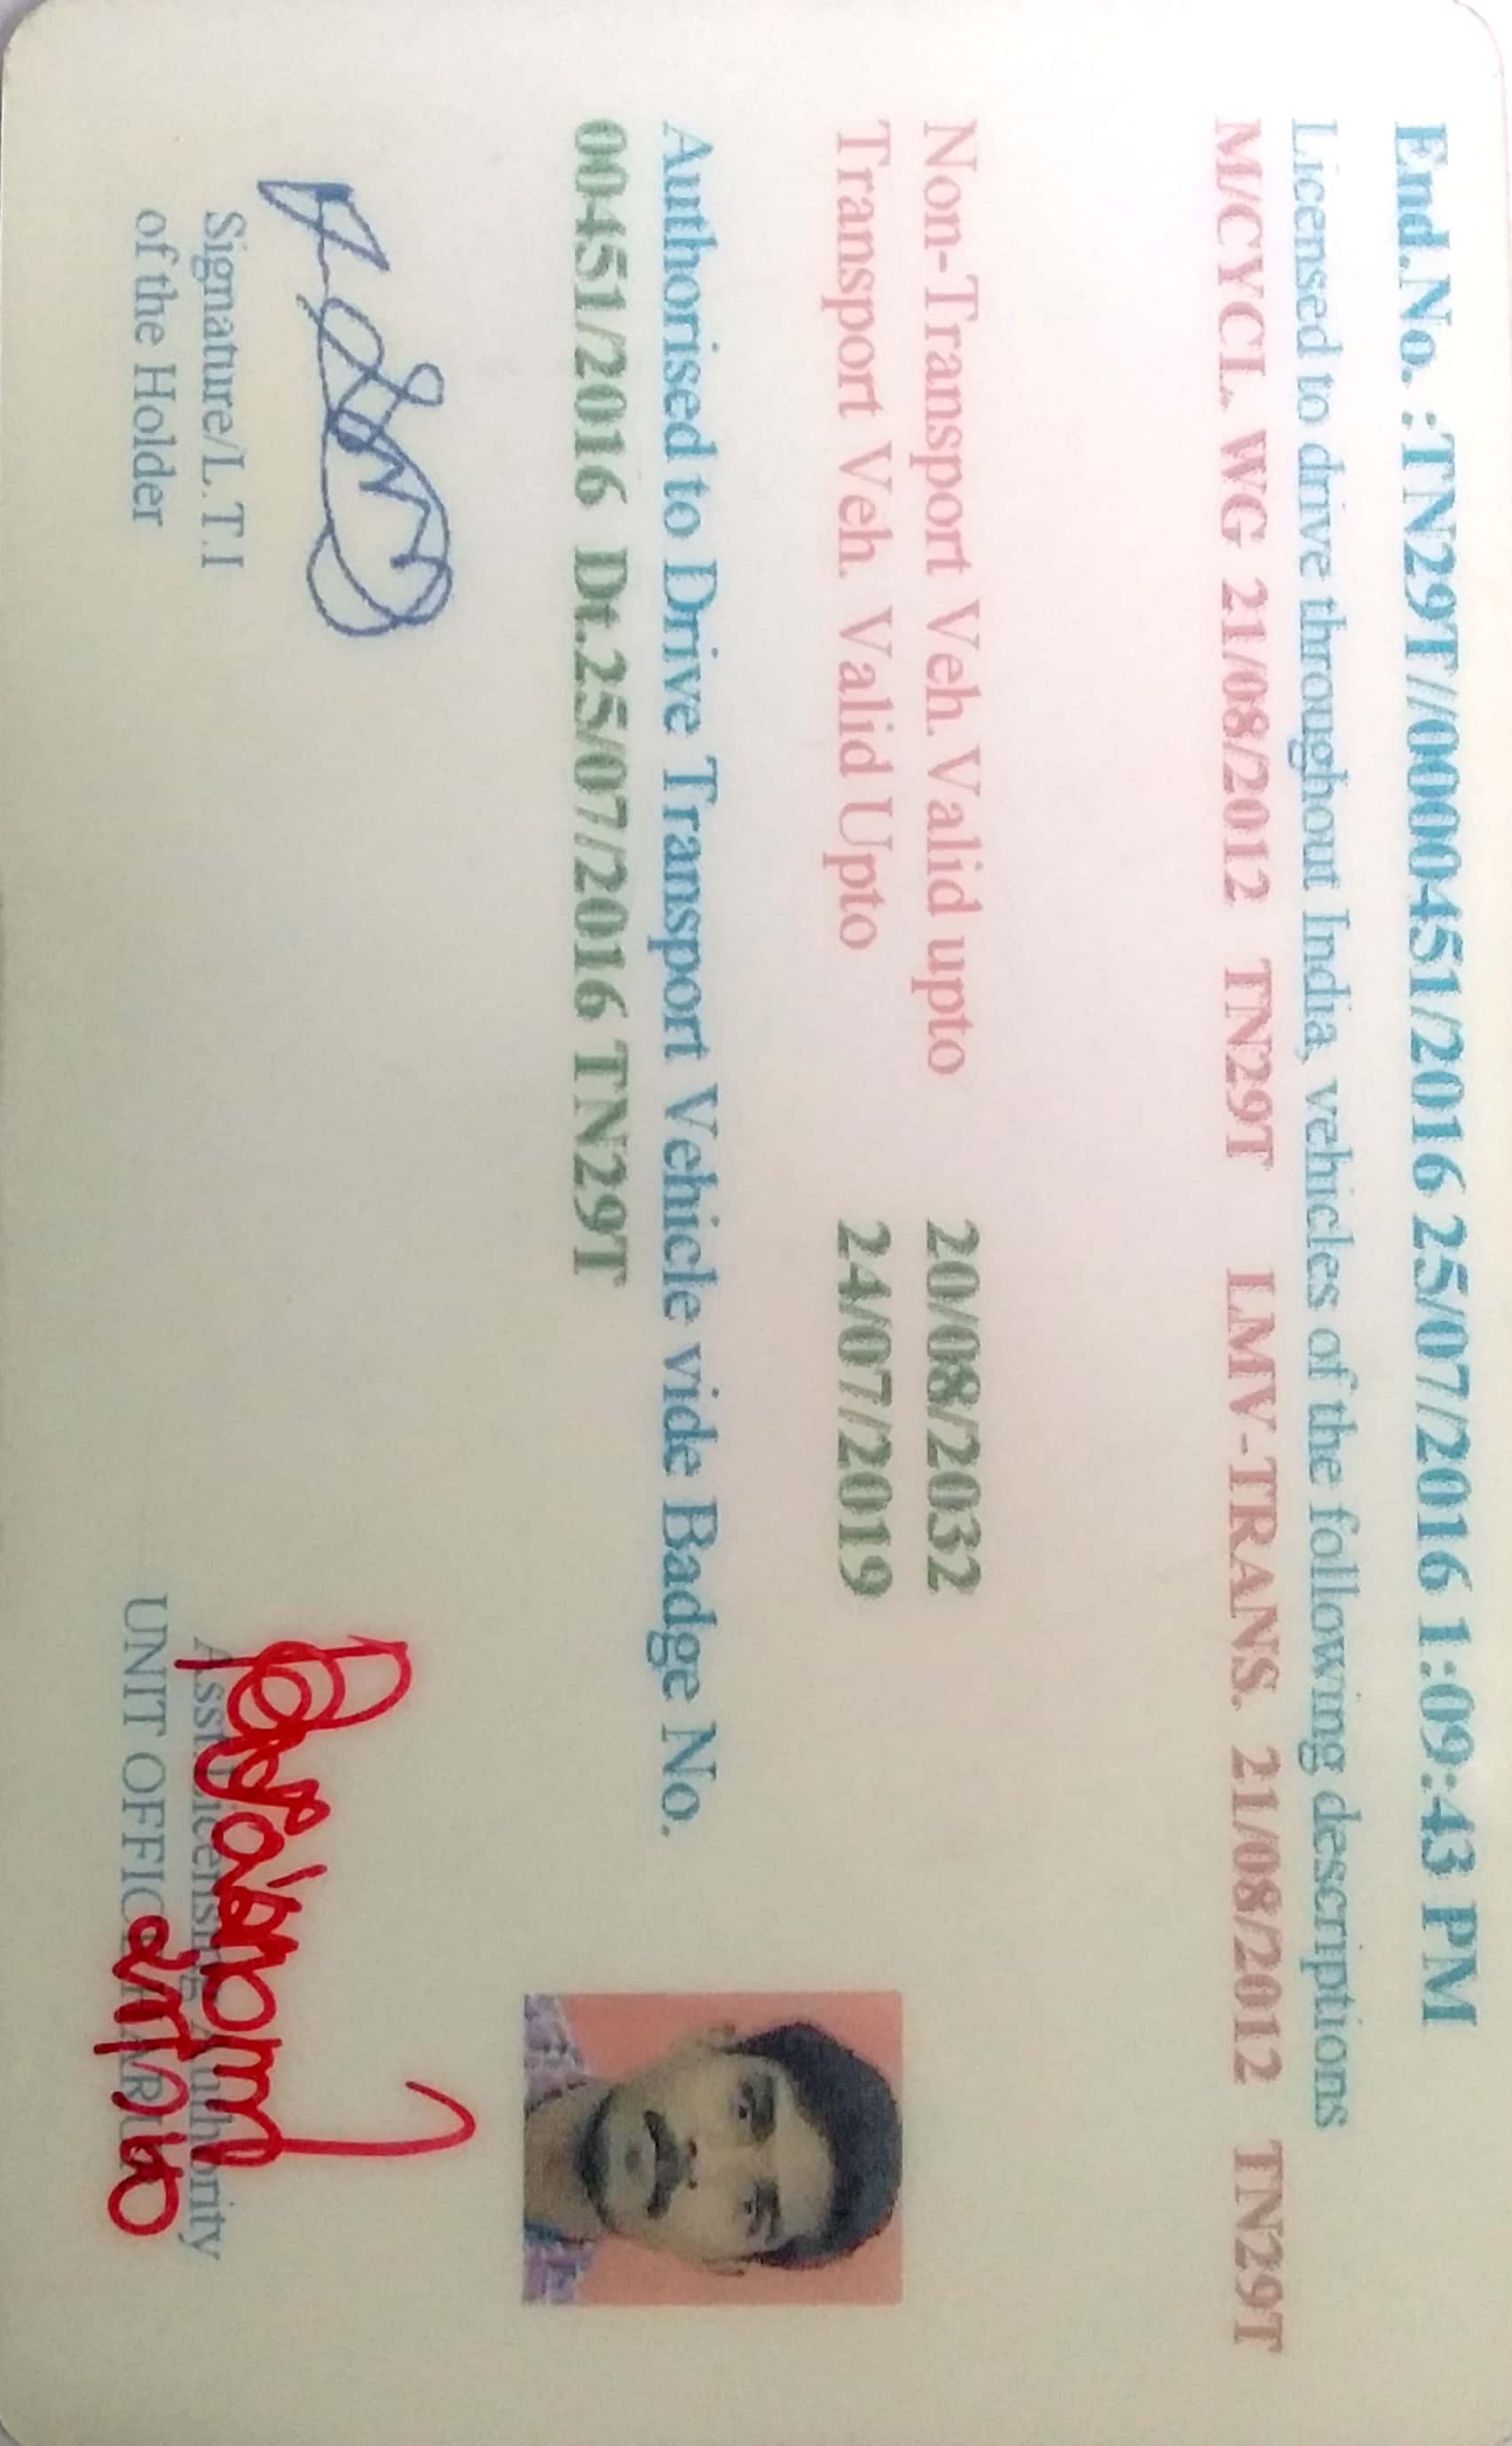 End.No. :TN29T//0000451/2016 25/07/2016 1:09:43 PM
Licensed to drive throughout India, vehicles of the following descriptions
M/CYCL. WG 21/08/2012 TN29T LMV-TRANS. 21/08/2012 TN29T
Non-Transport Veh. Valid upto 20/08/2032
Transport Veh. Valid Upto 24/07/2019
Authorised to Drive Transport Vehicle vide Badge No.
00451/2016 Dt.25/07/2016 TN29T
Signature/L.T.I
of the Holder
Asst. Licensing Authority
UNIT OFFICE